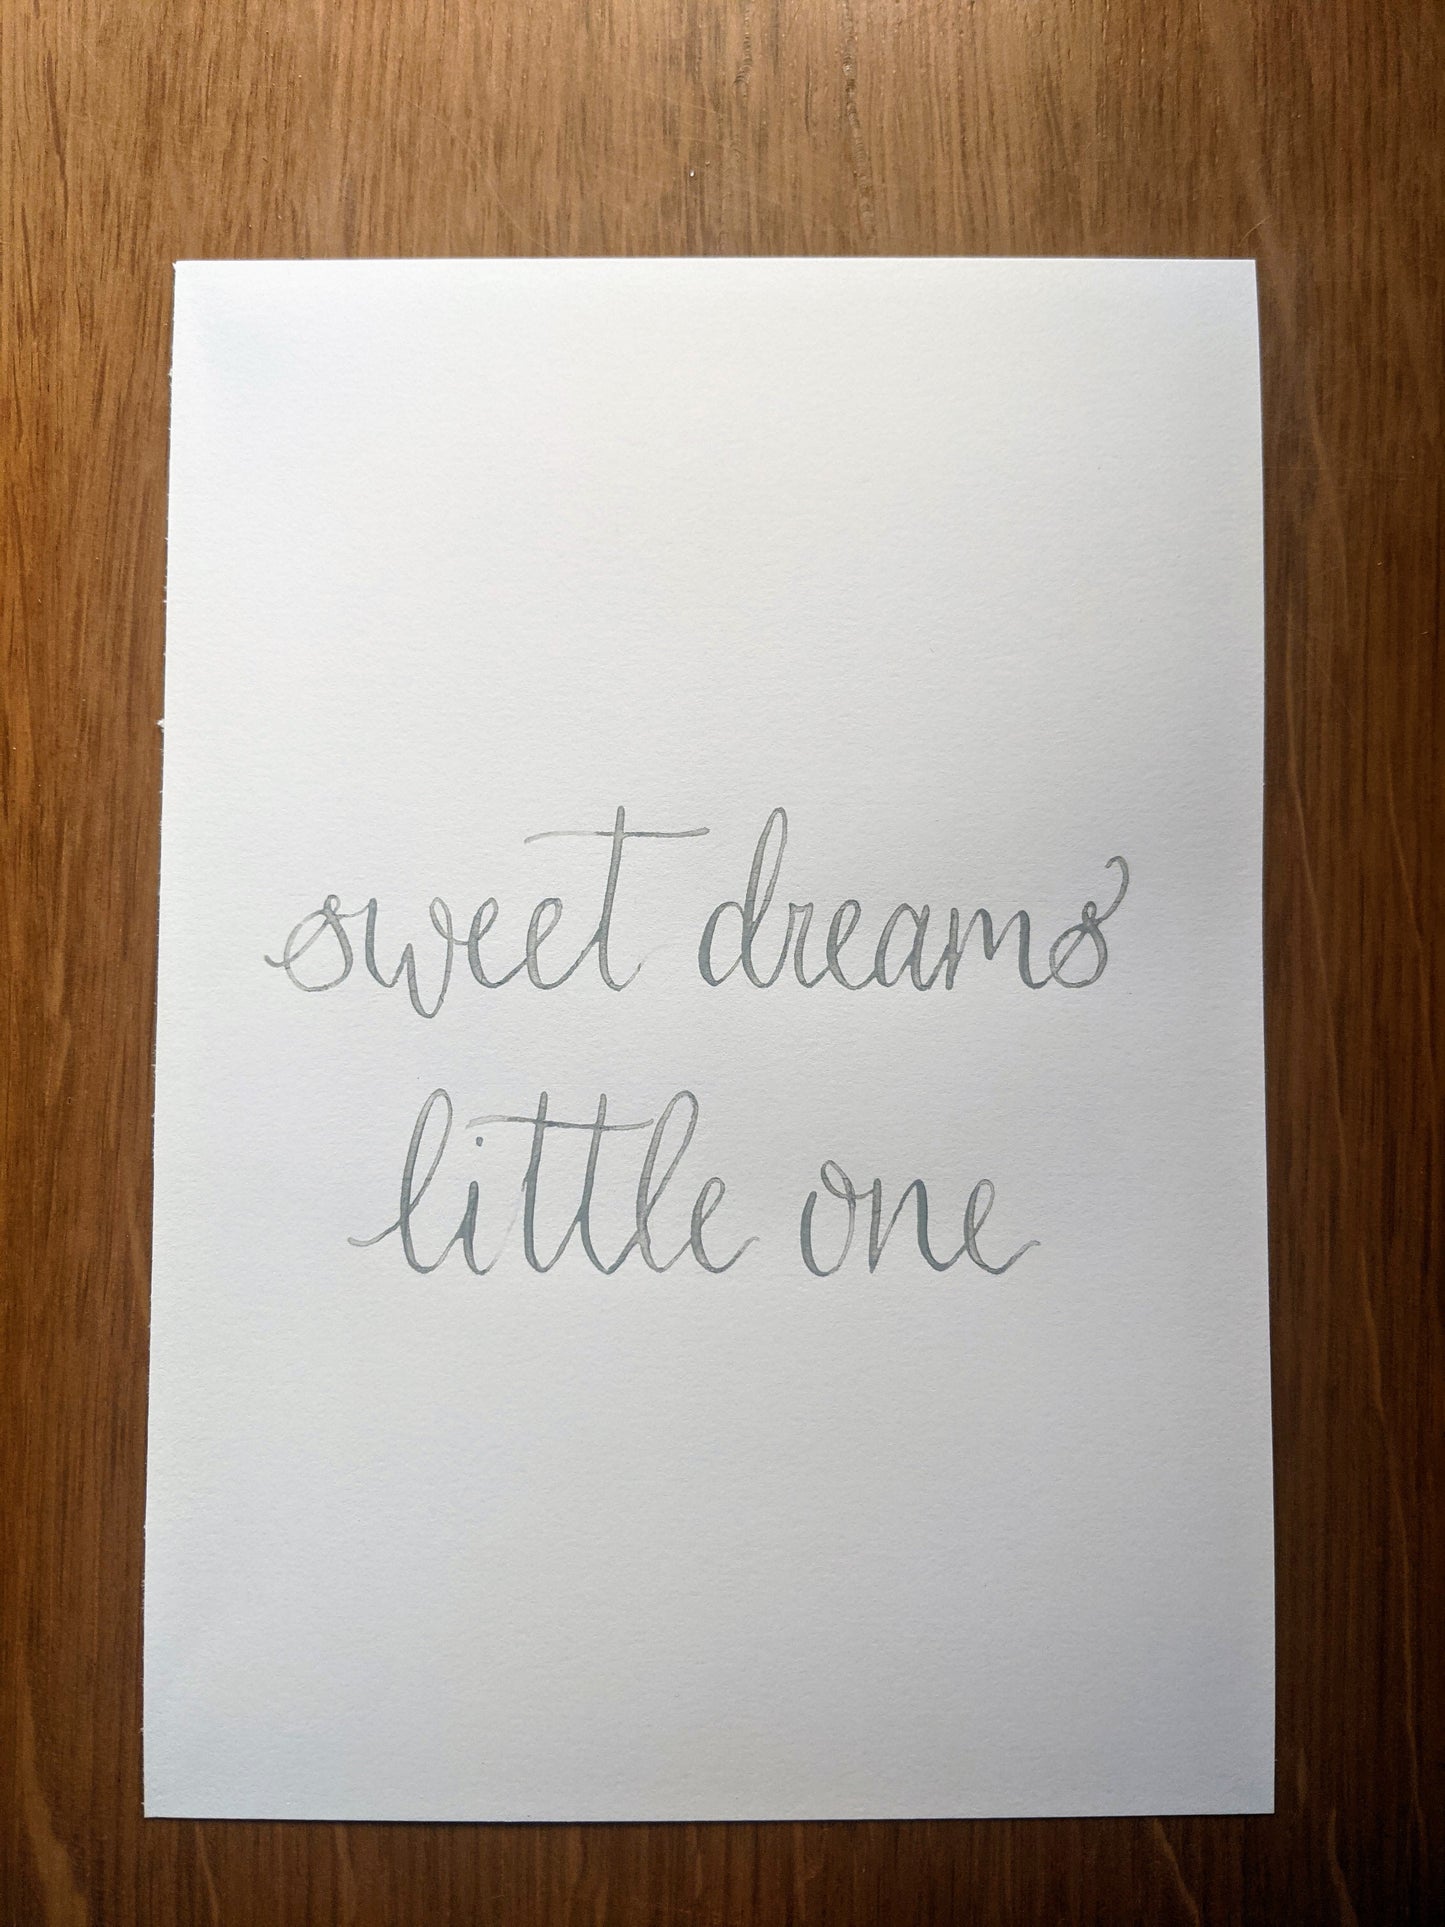 sweet dreams
little one